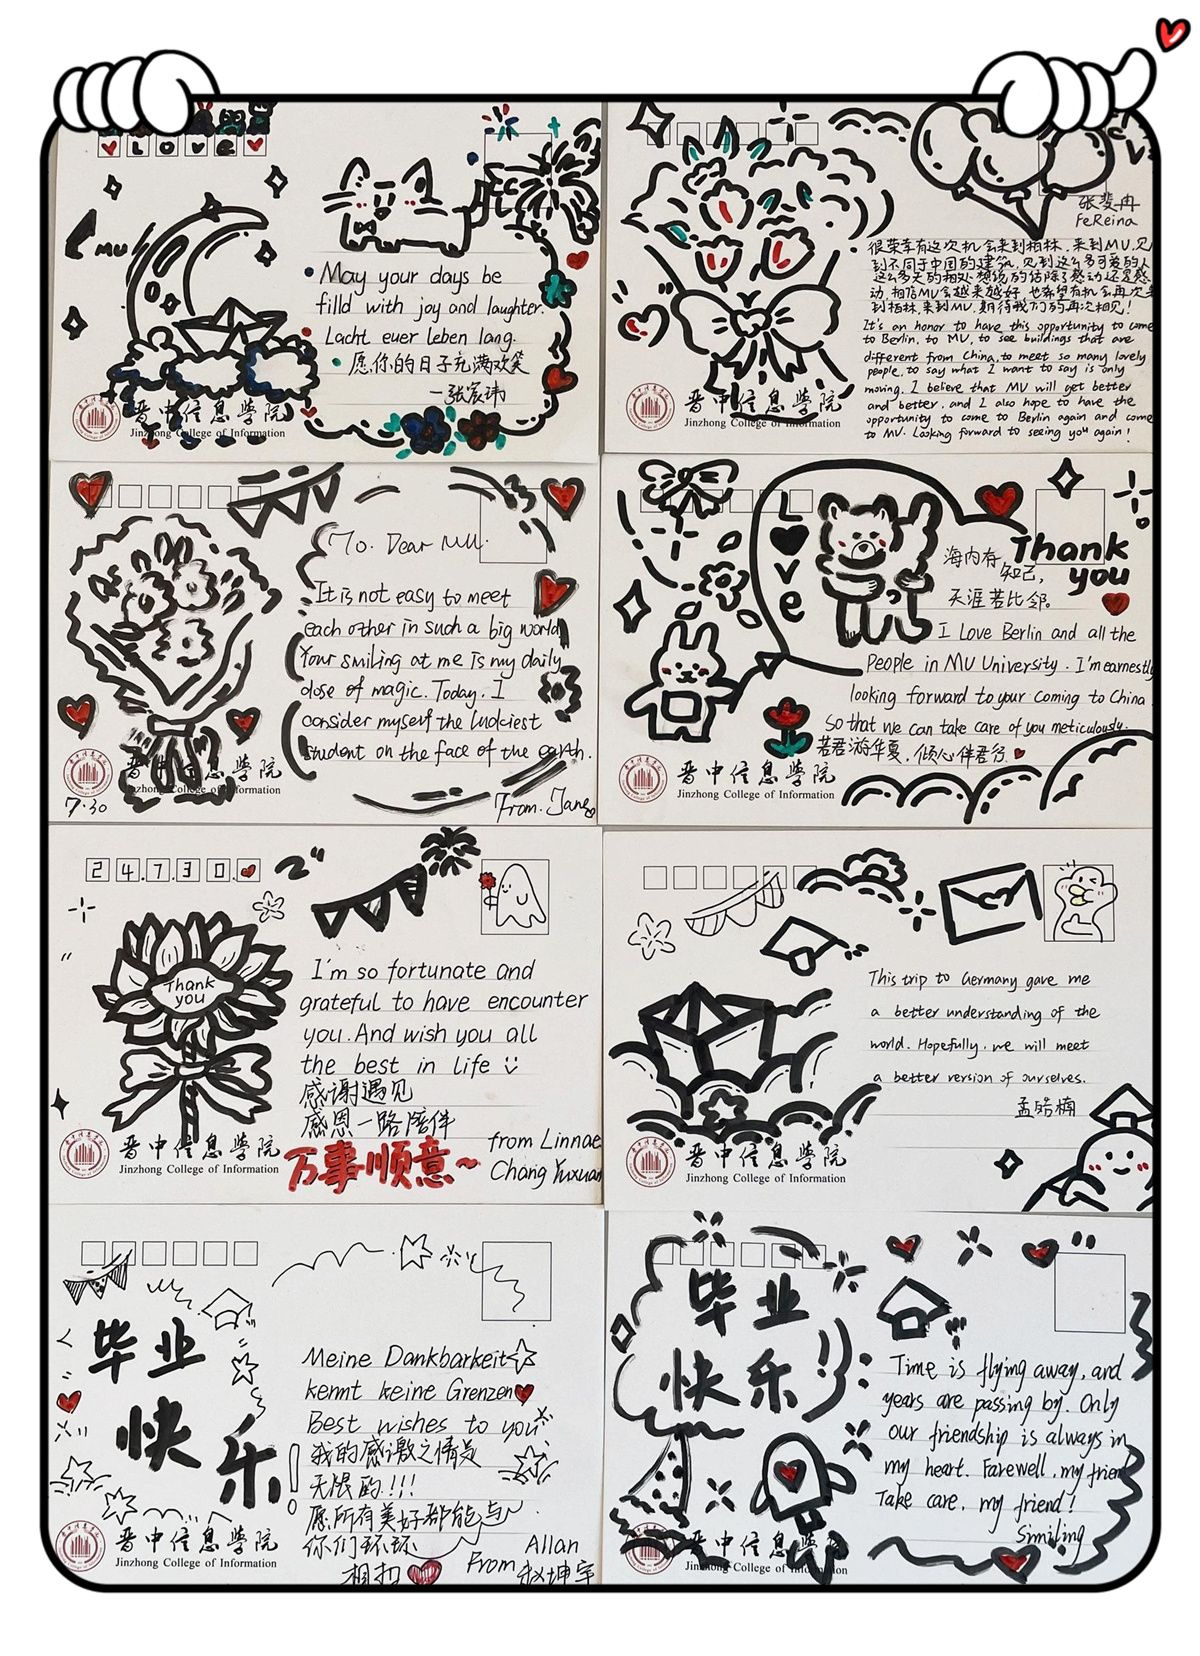 LOVE
MU
May your days be
filld with joy and laughter.
Lacht euer leben lang.
愿你的日子充满欢笑
一张宸玮
晋中信息学院
Jinzhong College of Information
FeReina
很荣幸有这次机会来到柏林，来到MU，见
到不同于中国的建筑，见到这么多可爱的人
这么多天的相处想说的话除了感动还是感
动，相信MU会越来越好，也希望有机会再次来
到柏林，来到MU，期待我们的再次相见！
It's an honor to have this opportunity to come
to Berlin, to MU, to see buildings that are
different from China, to meet so many lovely
people, to say what I want to say is only
moving. I believe that MU will get better
and better, and I also hope to have the
opportunity to come to Berlin again and come
to MU. Looking forward to seeing you again!
晋中信息学院
Jinzhong College of Information
To. Dear MU.
It is not easy to meet
each other in such a big world
Your smiling at me is my daily
dose of magic. Today, I
consider myself the luckiest
student on the face of the earth.
晋中信息学院
Jinzhong College of Information
7.30
From. Jane
Love
Thank
you
海内存
知己，
天涯若比邻。
I Love Berlin and all the
People in MU University. I'm earnestly
looking forward to your coming to China
So that we can take care of you meticulously.
若君游华夏，倾心伴君兮
晋中信息学院
Jinzhong College of Information
24.7.30.
Thank
you
I'm so fortunate and
grateful to have encounter
you. And wish you all
the best in life
感谢遇见
感恩一路陪伴
万事顺意~
from Linnae
Chang Yuxuan
晋中信息学院
Jinzhong College of Information
This trip to Germany gave me
a better understanding of the
world. Hopefully, we will meet
a better version of ourselves.
孟皓楠
晋中信息学院
Jinzhong College of Information
毕业
快乐!
Meine Dankbarkeit
kennt keine Grenzen
Best wishes to you
我的感激之情是
无限的!!!
愿所有美好都能与
你们环环
相扣
From Allan
赵坤宇
晋中信息学院
Jinzhong College of Information
毕业
快乐!
Time is flying away, and
years are passing by. Only
our friendship is always in
my heart. Farewell, my friend
Take care, my friend!
Similing
晋中信息学院
Jinzhong College of Information